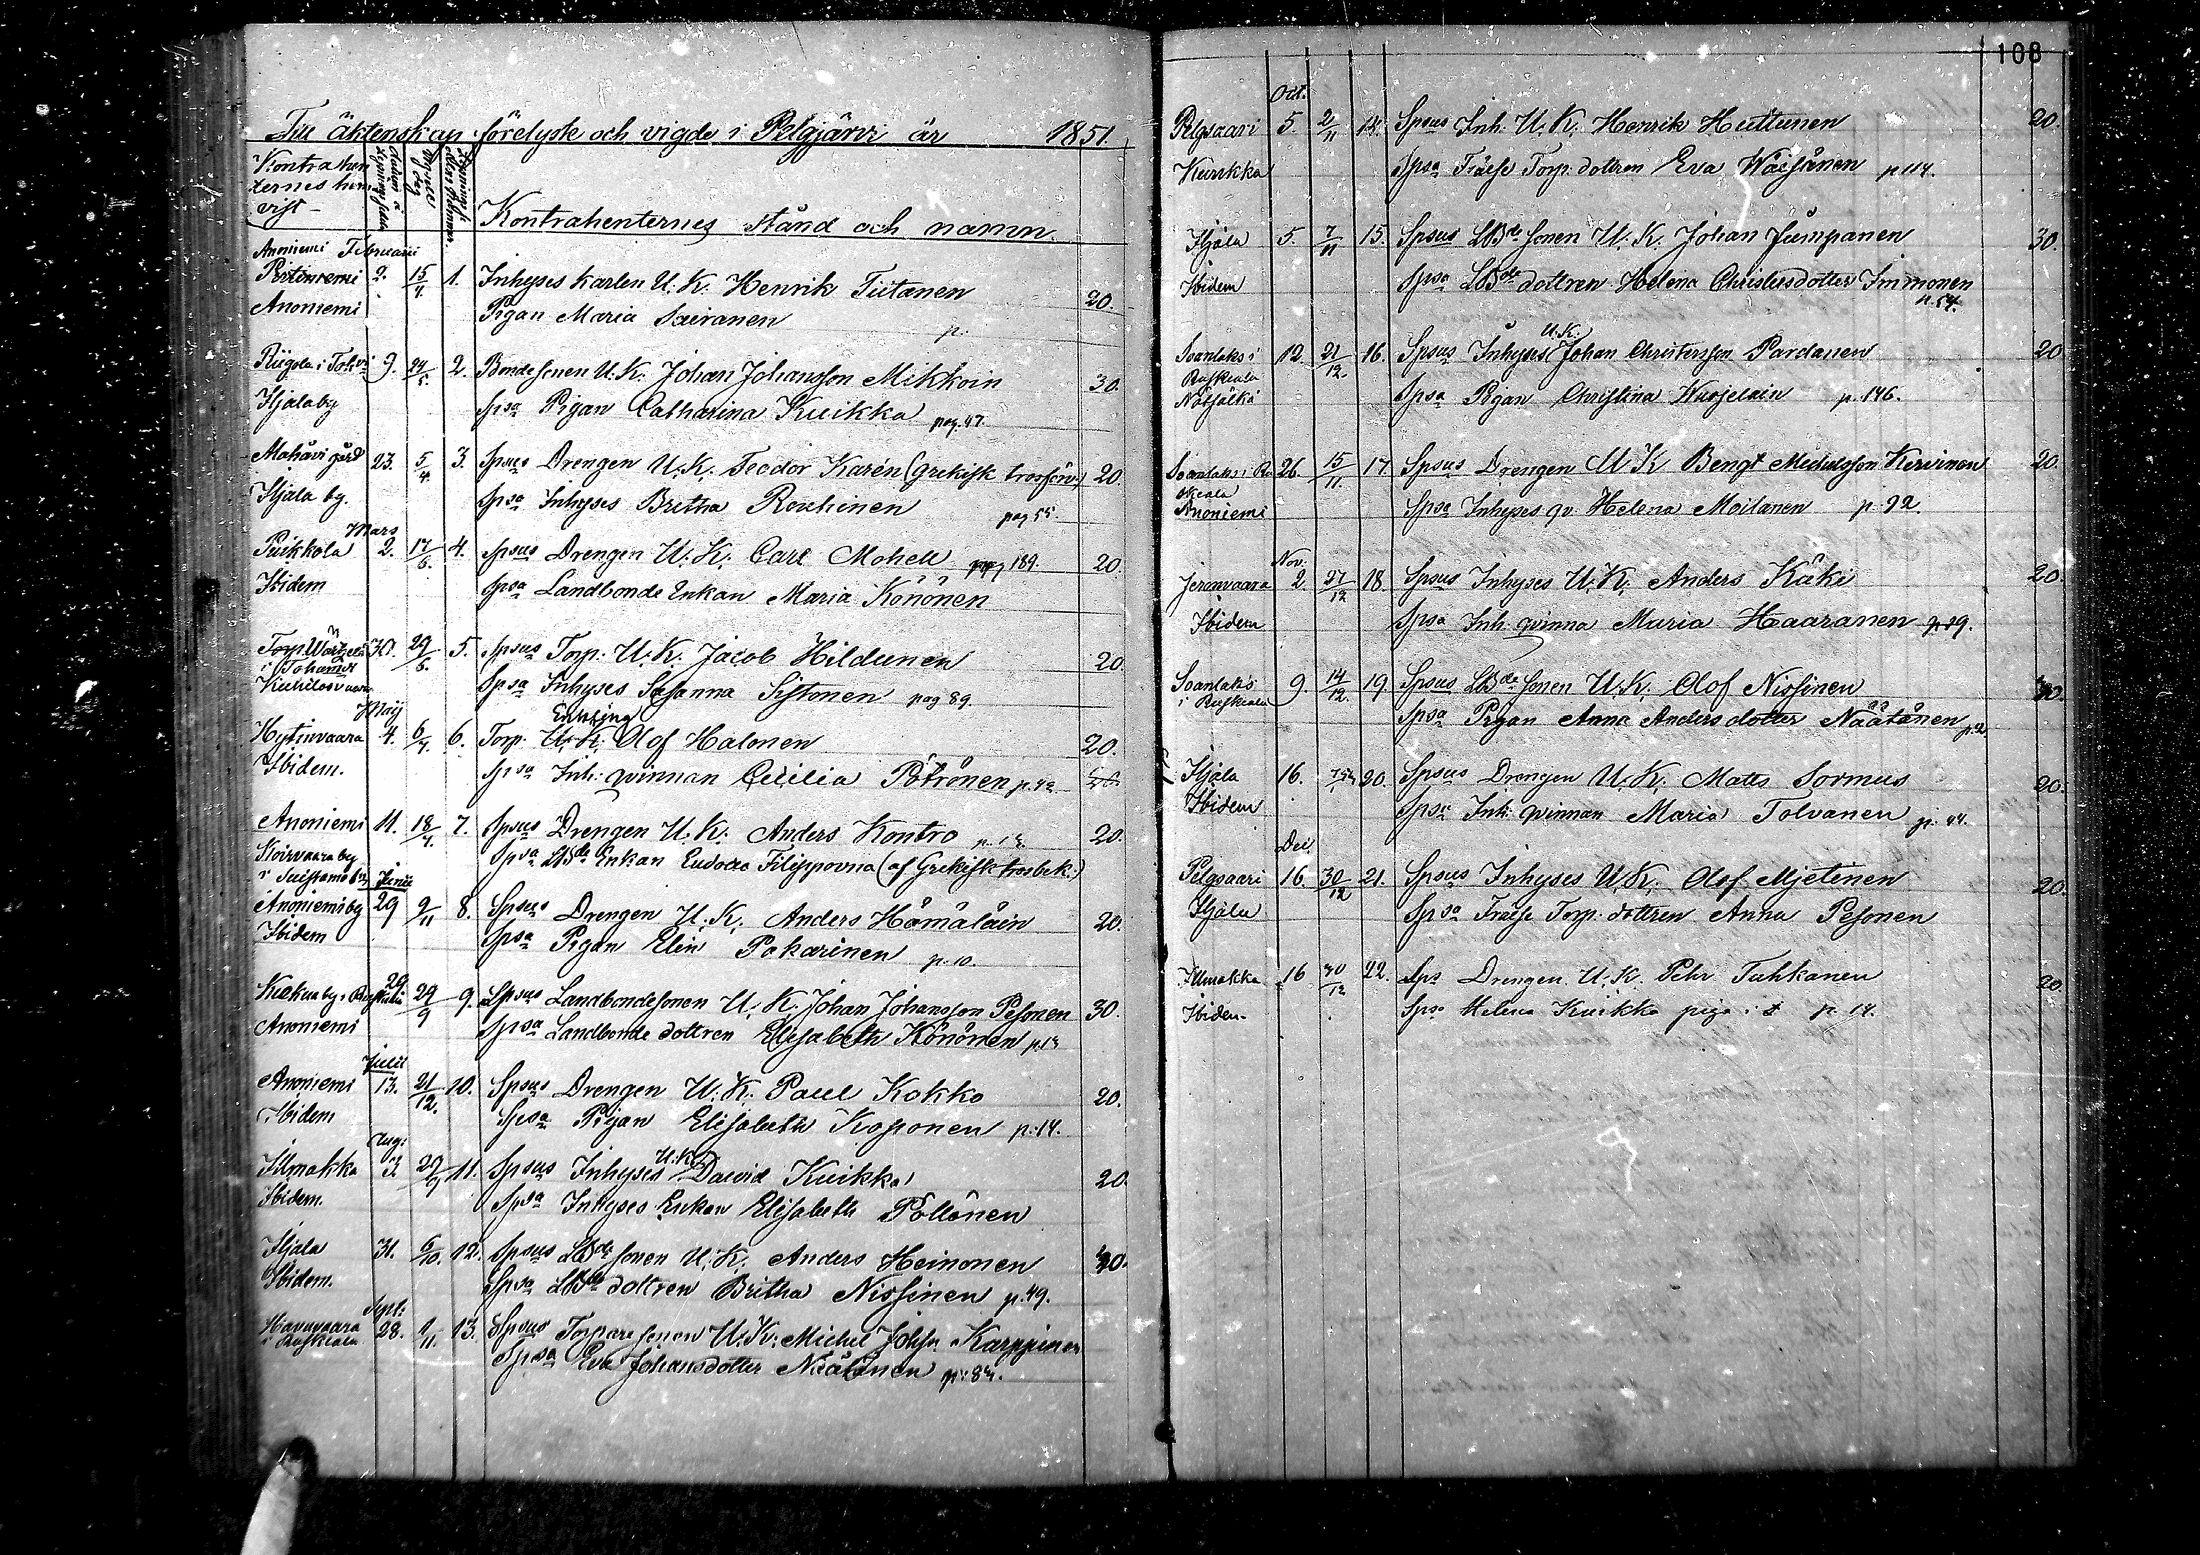 Till äktenskap förelyste och vigde i Pelgjärvi år 1851.
Kontrahenternes hemvist Kontrahenternes stånd och namn.
Anoniemi Februarii
2. 15/4. 1. Inhyses karlen U. K. Henrik Tiitanen 20.
Anoniemi Pigan Maria Sairanen p.
9. 24/5. 2. Bondesonen U. K. Johan Johansson Mikkoin 30.
Iljala by Spsa Pigan Catharina Kuikka pag. 47.
23. 5/4. 3. Spsus Drengen U. K. Teodor Karén (grekisk trosförv.) 20.
Iljala by. Spsa Inhyses Britha Rouhinen pag 55.
Mars
Puikkola 2. 17/6. 4. Spsus Drengen U. K. Carl Mohell pag 189. 20.
Ibidem Spsa Landbonde Enkan Maria Könönen
30. 29/6. 5. Spsus Torp. U. K. Jacob Hildunen 20.
i Tohmaj.
Spsa Inhyses Susanna Sistonen pag 89.
Maij Enkling
Hytinvaara 4. 6/7. 6. Torp. U. K. Olof Halonen 20.
Ibidem. Spsa Inh: qvinnan Cecilia Pötrönen
Anoniemi 11. 18/7. 7. Spsus Drengen U. K. Anders Kontro 20.
Koirvaara by Spsa LBde Enkan Eudocia Filippovna (af Grekisk trosbek.)
i Suistamo Junii
Anoniemi by 29 9/11 8. Spsus Drengen U. K. Anders Hämäläin 20.
Ibidem Spsa Pigan Elin Pakarinen p. 10.
29 29/9 9. Spsus Landbondesonen U. K. Johan Johansson Pesonen 30.
Anoniemi Spsa Landbonde dottren Elisabeth Könönen
Julii
Anoniemi 13. 21/12. 10. Spsus Drengen U. K. Paul Kokko 20.
Ibidem Spsa Pigan Elisabeth Koponen p. 14.
Aug:
Ilmakka 3 29/9 11. Spsus Inhyses U. K. David Kuikka 20.
Ibidem. Spsa Inhyses Enkan Elisabeth Pöllönen
Iljala 31. 6/10. 12. Spsus LBde sonen U. K. Anders Heinonen
Ibidem. Spsa LBde dottren Britha Nissinen p. 49.
Sept:
Havuvaara 28. 1/11. 13. Spsus Torparesonen U. K. Michel Johsn Karppinen
i Ruskeala Spsa Eva Johansdotter Näätänen
108
Oct.
Pelgsaari 5. 2/11 14. Spsus Inh. U. K. Henrik Huttunen 20.
Kuikka Spsa Frälse Torp. dottren Eva Wäisänen p 114.
Iljala 5. 7/11 15. Spsus LBde sonen U. K. Johan Jumpanen 30.
Ibidem Spsa LBde dottren Helena Christersdotter Immonen
p. 54.
Soanlaks i 12. 21/12. 16. Spsus Inhyses U. K. Johan Christersson Pardanen 20
Ruskeala
Spsa Pigan Christina Wuojelain p. 146.
Soanlaks i Ruskeala 26. 15/11. 17. Spsus Drengen U K Bengt Michelsson Kervinen 20.
Anoniemi Spsa Inhyses qv. Helena Moilanen p. 92.
Nov.
Jeronvaara 2. 27/12 18. Spsus Inhyses U. K. Anders Käki 20.
Ibidem Spsa Inh. qvinna Maria Haaranen p 29.
Soanlaks 9. 14/12. 19. Spsus LBde sonen U. K. Olof Nissinen
i Ruskeala Spsa Pigan Anna Andersdotter Näätänen
Iljala 16. 20. Spsus Drengen U. K. Matts Sormus 20.
Ibidem Spsa Inh. qvinnan Maria Tolvanen p. 44.
Dec.
Pelgsaari 16. 30/12 21. Spsus Inhyses U. K. Olof Mjetinen 20
Iljala Spsa Frälse Torp. dottren Anna Pesonen
Ilmakka 16 30/12 22. Sps Drengen U. K. Pehr Tuhkanen 20.
Ibidem Spsa Helena Kuikka piga i d p. 14.